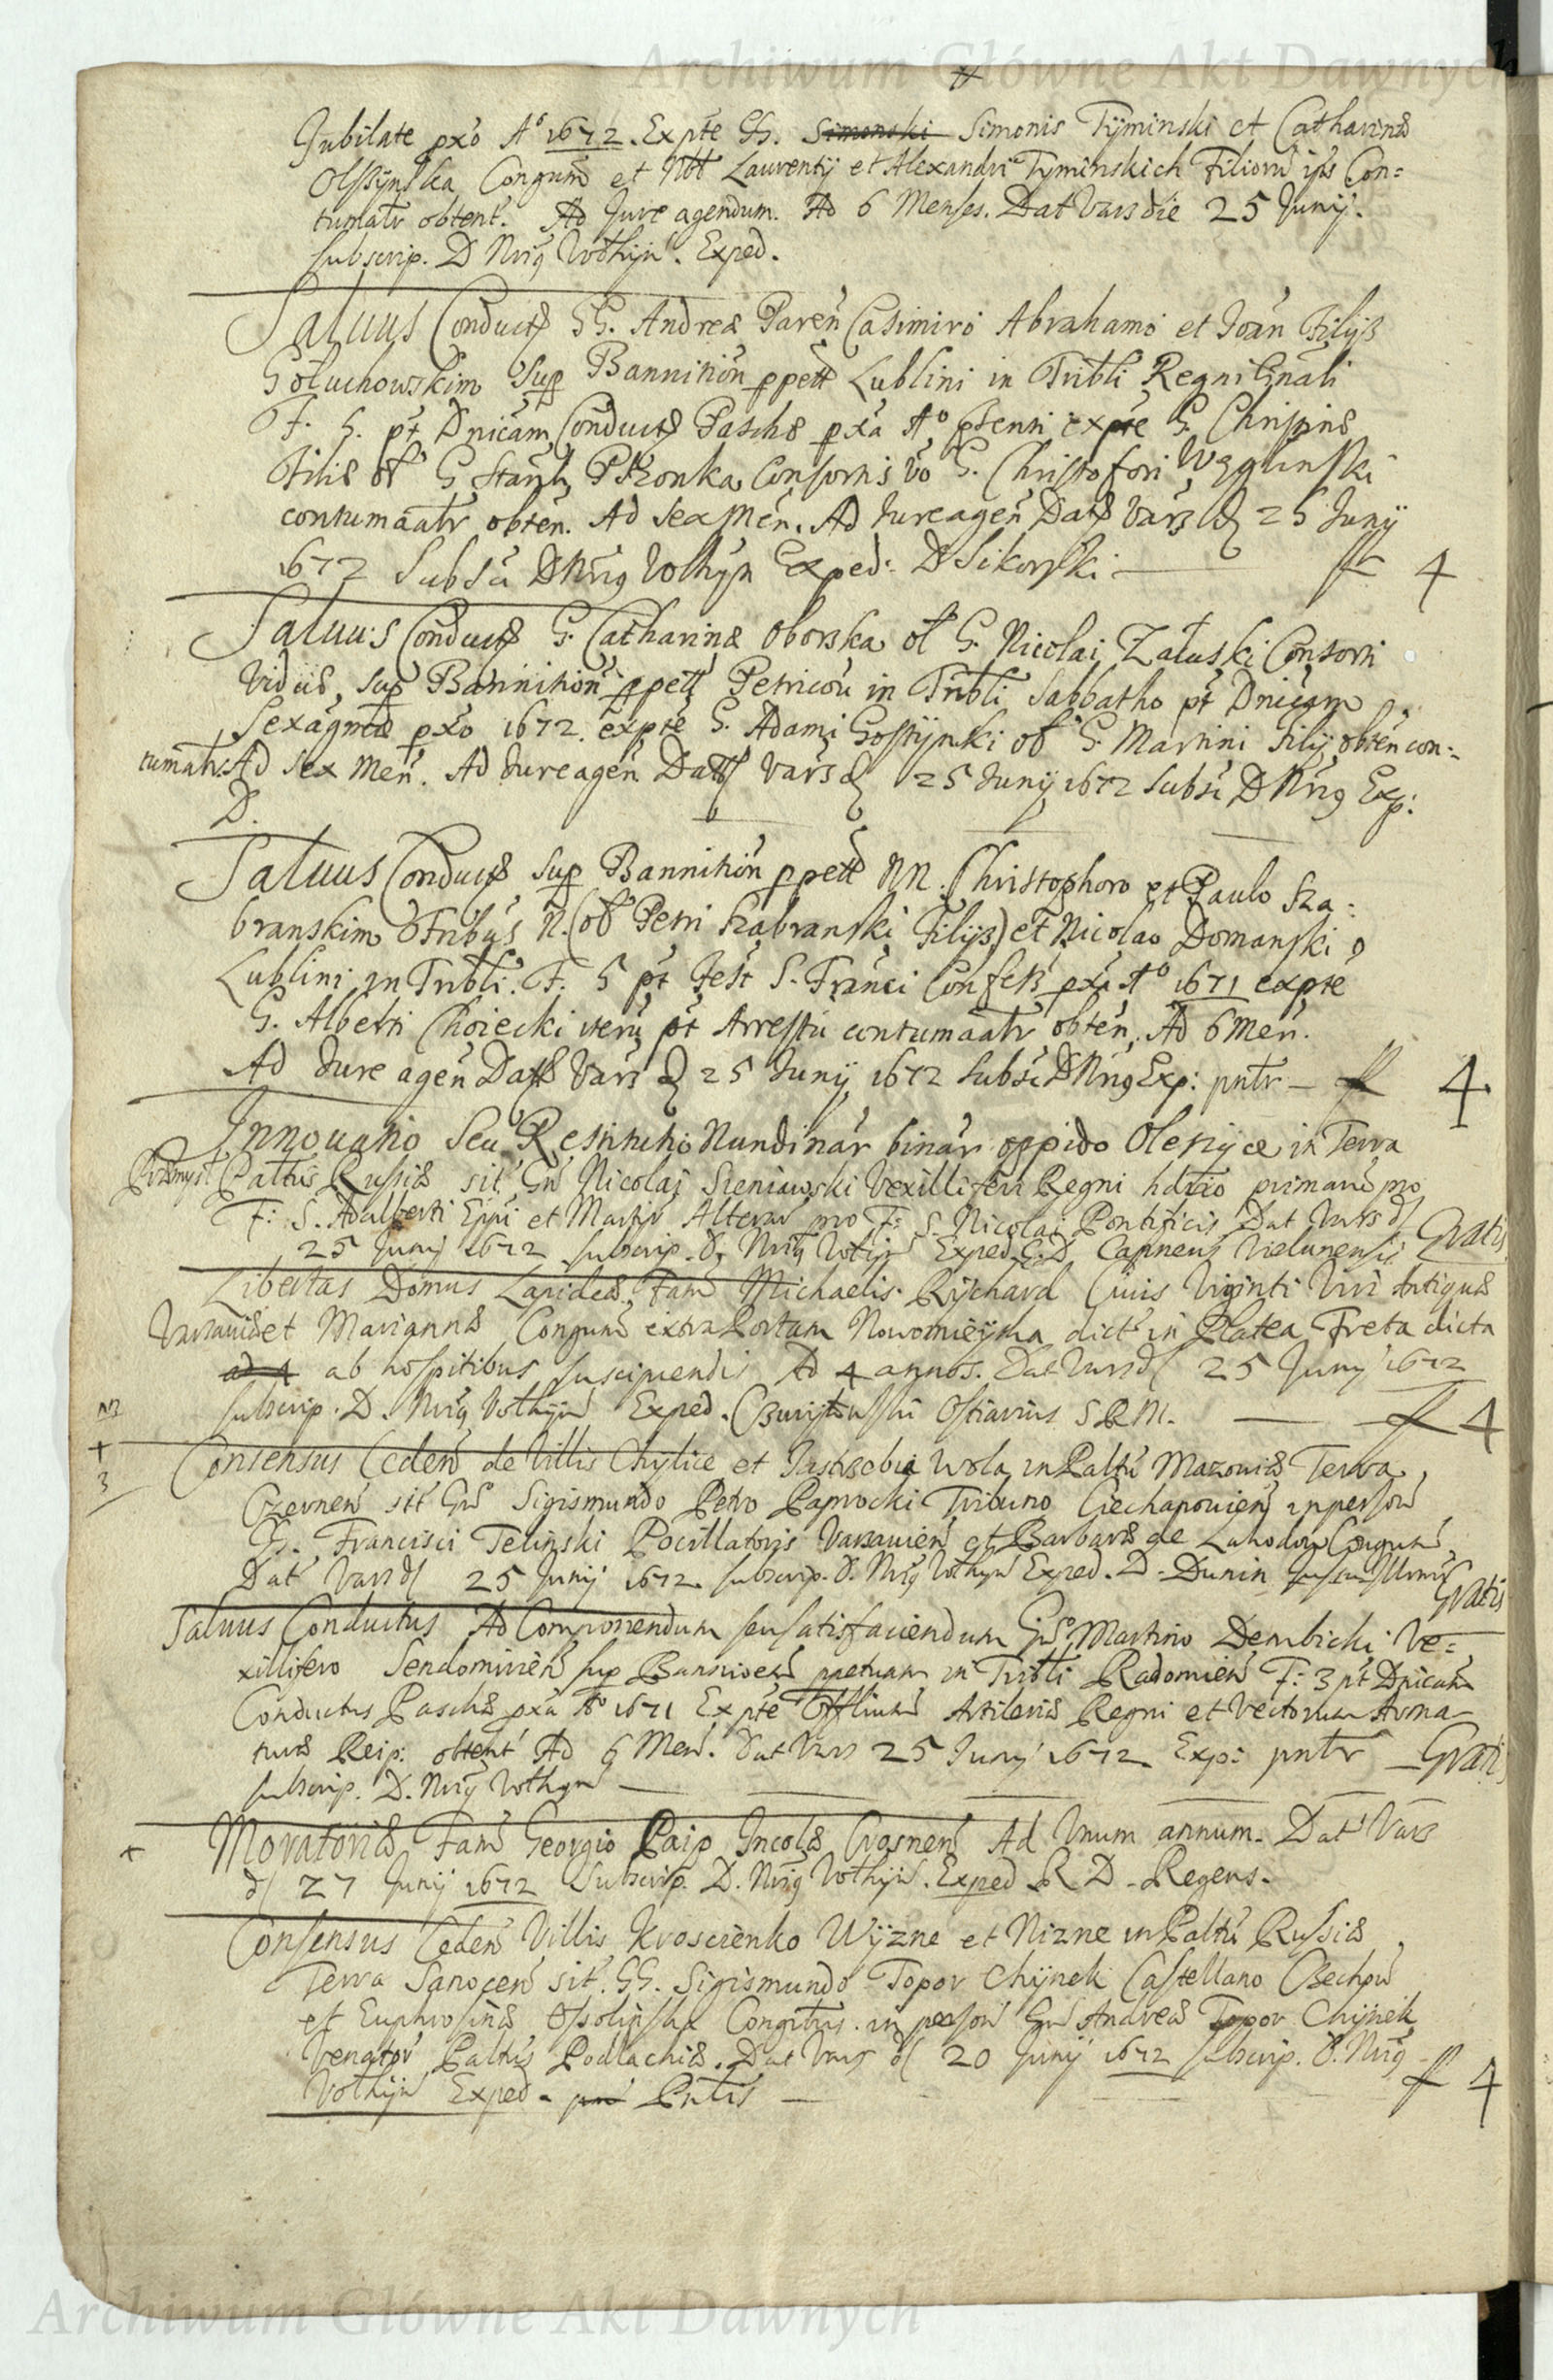 Archiwum Główne Akt Dawnych
Jubilate pxo Aº 1672. Expte GG. Simonski Simonis Tyminski et Catharinæ
Olszynska Congum et Nbt Laurentij et Alexandri Tyminskich Filiorū ips Con=
tumatr obtent. Ad Jure agendum. Ad 6 Menses. Dat Vars die 25 Junij.
subscrip. D Nrig Wothyń. Exped.
Saluus Conduct9 GG. Andreæ Paren Casimiro Abrahamo et Joan Filijs
Gołuchowskim sup Bannition ppett Lublini in Tribli Regni Gnali
F. 5. pt Dnicam Conduct9 Paschæ pxa Aº psenti expte G. Chrisinæ
Filiæ ol G. Stanis Pkonka Consortis vo G. Christofori Węglinski
contumaatr obten. Ad sex Men. Ad Jure agen Dat9 Vars d 25 Junij
1672 Subscr D Nrig Wothyn Exped: D Sikorski — ff 4
Saluus Conduct9 G. Catharinæ Oborska ol G. Nicolai Załuski Consorti
Viduæ, sup Bannition ppett Petricou in Tribli Sabbatho pt Dnicam
Sexagmæ pxo 1672. expte G. Adami Gostynki ol G. Martini filij obten con=
tumatr. Ad sex Men. Ad Jure agen Datt Vars d 25 Junij 1672 subscr D Nrig Exp:
D.
Saluus Conduct9 sup Bannition ppett NN. Christophoro et Paulo Sza=
branskim Fribus N. (ol Petri Szabranski Filijs) et Nicolao Domanski
Lublini in Tribli. F. 5 pt Fest S. Franci Confess pxi Aº 1671 expte
G. Alberti Choiecki iteru pt Arrestu contumaatr obten. Ad 6 Men.
Ad Jure agen Datt Vars d 25 Junij 1672 Subscr D Nrig Exp: pntr — ff 4
Innouatio Seu Restitutio Nundinar binar oppido Oleszyce in Terra
Præmysl Pattus Russiæ sit Gn Nicolai Sieniawski Vexilliferi Regni hdtrio primarū pro
F: S. Adalberti Eppi et Martir Alterar pro F: S. Nicolai Pontificis Dat Vars d Gratis
25 Junij 1672 subscrip. D. Nrig Wothyń Exped. G. D Capneus Vielunensis
Libertas Domus Lapideæ Fam Michaelis Rychard Ciuis Viginti Viri Antiquæ
Varsauiæ et Mariannæ Congum extra Portam Nowomieyska dict in Platea Freta dicta
ad 4 ab hospitibus suscipiendis Ad 4 annos. Dat Vars d 25 Junij 1672
subscrip. D. Nrig Wothyń Exped. Ostiarius S R M. — ff 4
Consensus Ceden de Villis Chylice et Jastrzebia Wola in Paltu Mazouiæ Terra
Czernen sit Gn Sigismundo Petro Paprocki Tribuno Ciechanouien in person
G. Francisci Telinski Pocillatoris Varsauien et Barbaræ de Lahodow Congum
Dat Vars d 25 Junij 1672. subscrip. D. Nrig Wothyń Exped. D. Dunin Gratis
Saluus Conductus Ad Componendum seu satisfaciendum Gn Martino Dembicki Ve=
xillifero Sendomirien sup Bannitem ppetuam in Tribli Radomien F: 3 pt Dnicam
Conductus Paschæ pxa Aº 1671 Expte Offlium Artileriæ Regni et Vectorum Arma
turæ Reip: obtent Ad 6 Men. Dat Vars 25 Junij 1672. Exp: pntr — Gratis
subscrip. D. Nrig Wothyn —
Moratoriæ Fam Georgio Paip Incolæ Crosnen Ad Vnum annum. Dat Vars
d 27 Junij 1672 Subscrip. D. Nrig Wothyń. Exped R D. Regens.
Consensus Ceden Villis Kroscienko Wyzne et Nizne in Paltu Russiæ
Terra Sanocen sit. GG. Sigismundo Topor Chynek Castellano Czechow
et Euphrosinæ Ossolinska Congibus in person Gn Andreæ Topor Chynek
Venatori Paltus Podlachiæ. Dat Vars d 20 Junij 1672 subscrip. D. Nrig
Wothyń Exped. Pntis — ff 4
Archiwum Główne Akt Dawnych